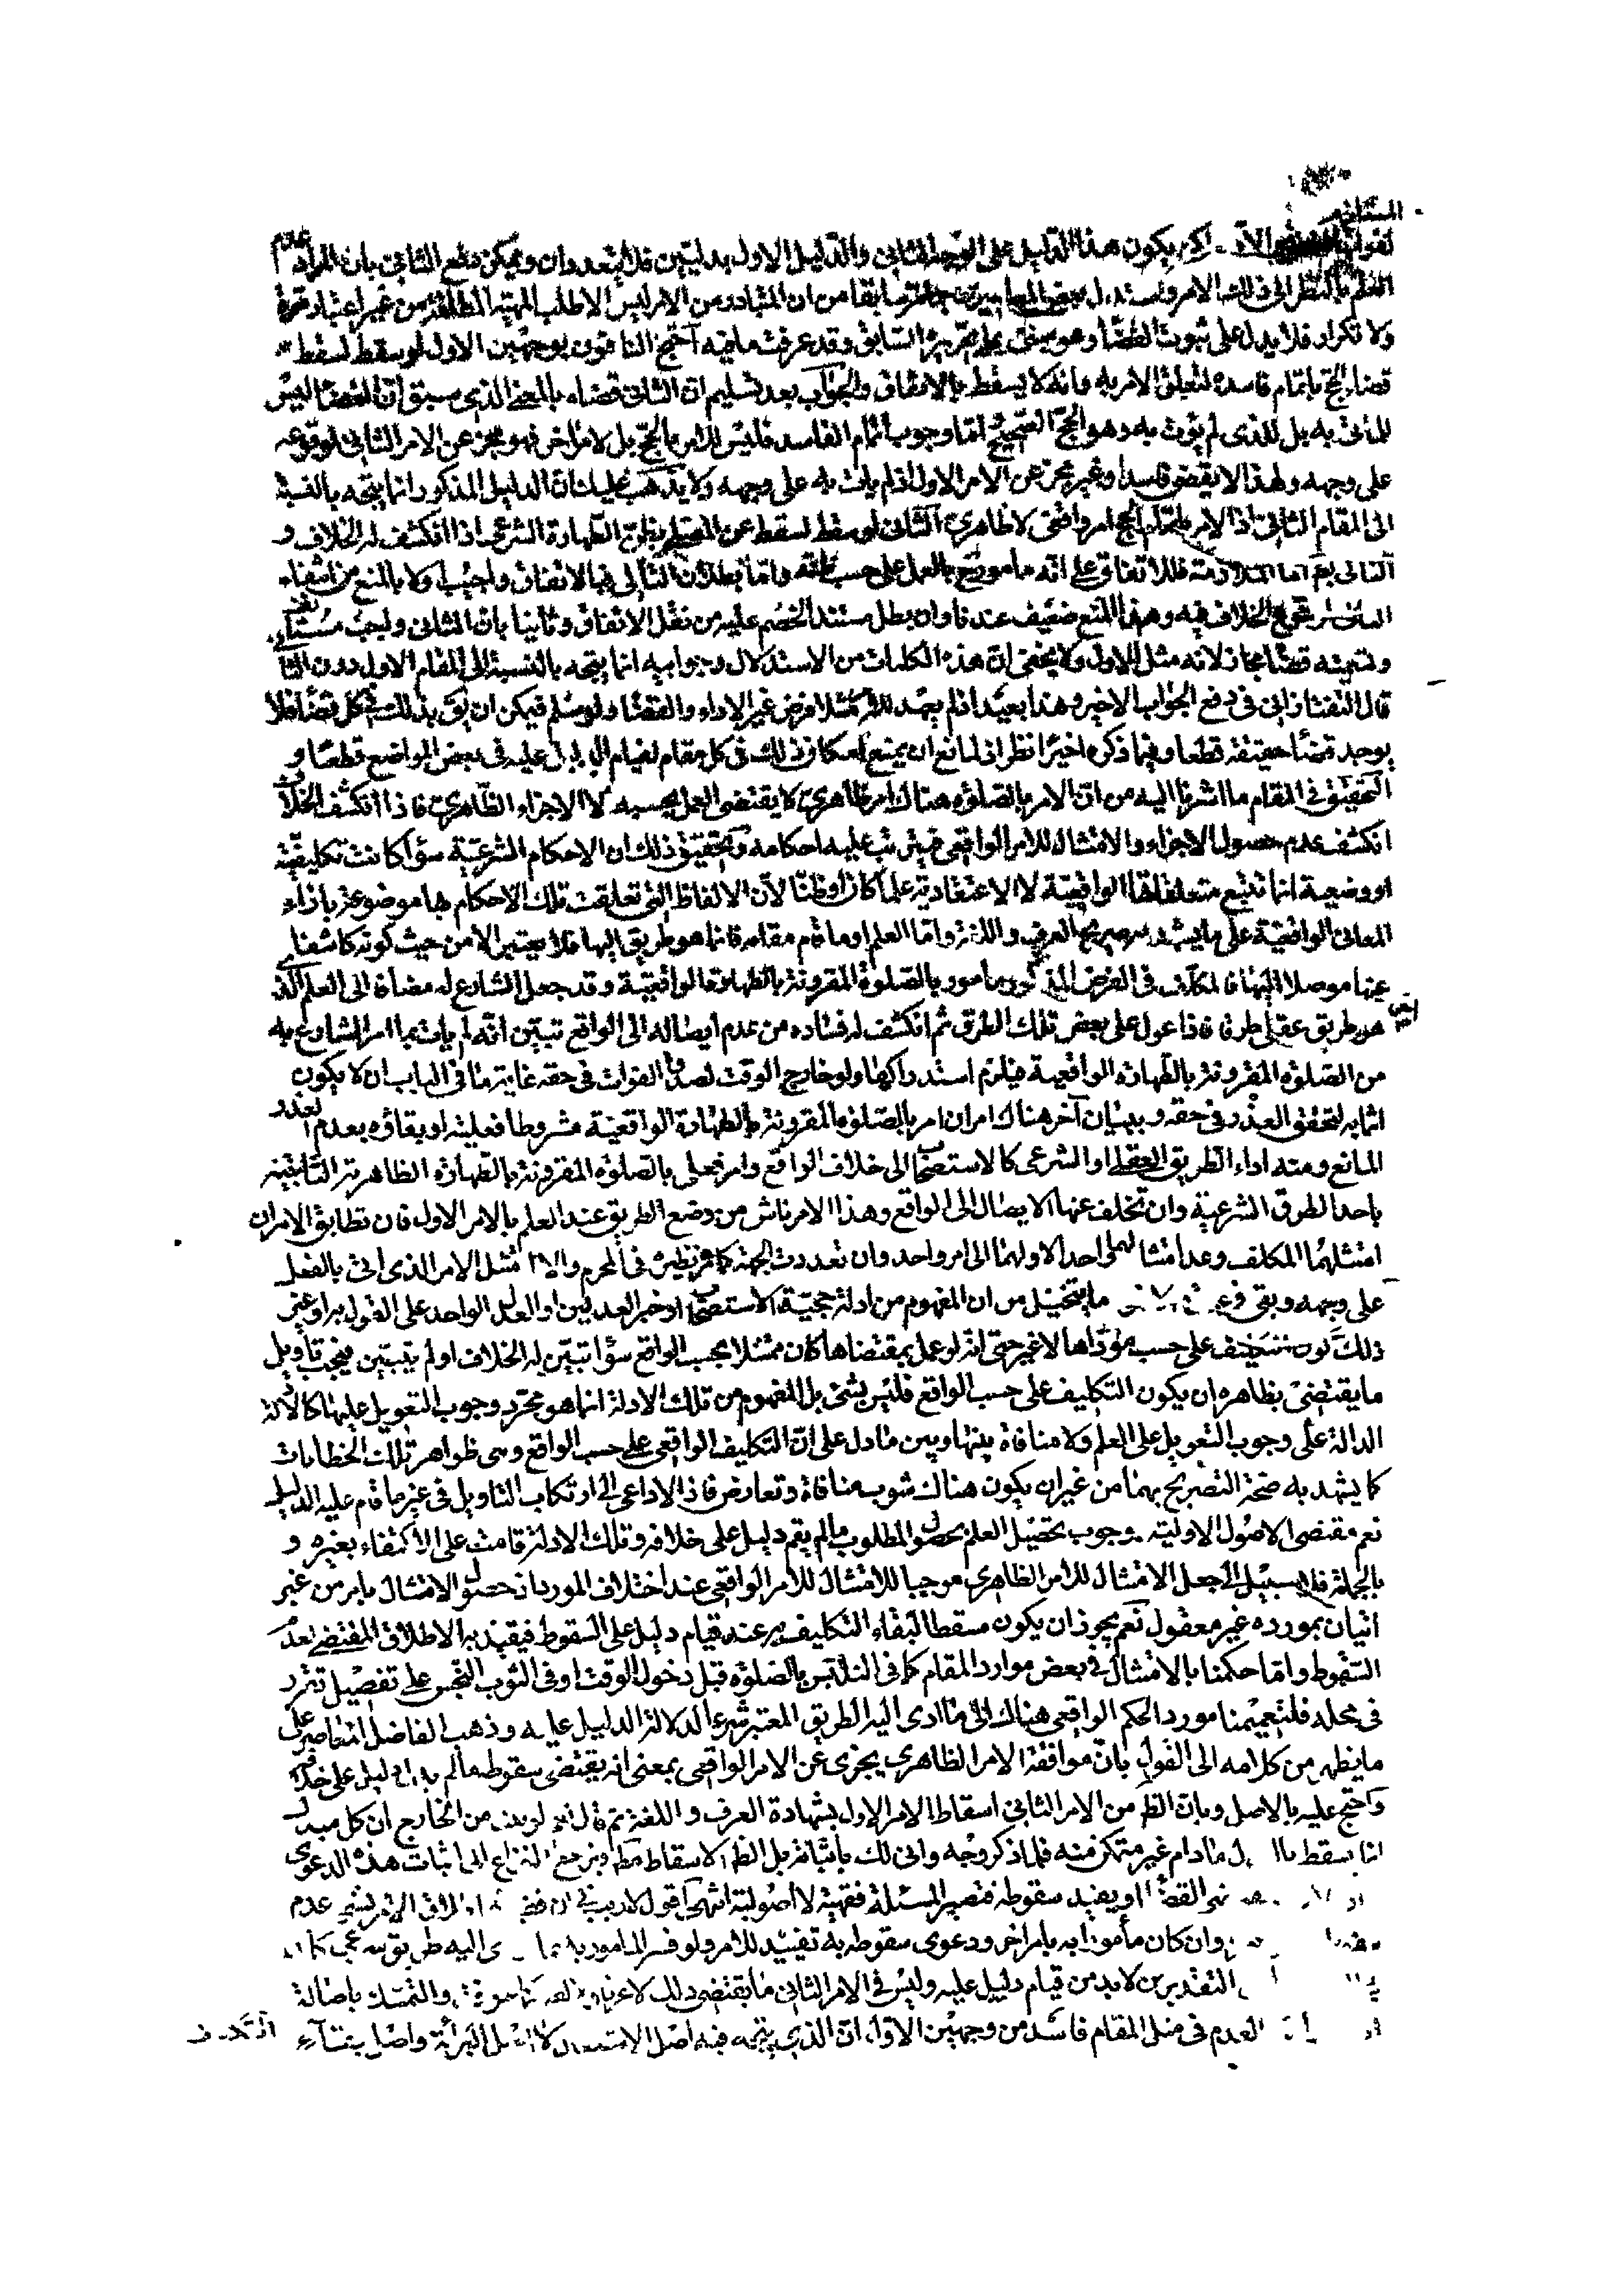 لكن يكون هذا الدليل على الوجه الثاني والدليل الاول بدليتين فلا يتعدوان ويمكن دفع الثاني بان المراد عدم
بالنظر الى ذلك الامر سابقا من ان المتبادر من الامر ليس الا طلب المهية المطلقة من غير اعتبار مرة
ولا تكرار فلا يدل على ثبوت القضاء وهو مبنى على تحريره السابق وقد عرفت ما فيه احتج النافون بوجهين الاول لو سقط لسقط
قضاء الحج باتمام فاسده لتعلق الامر به وانه لا يسقط بالاتفاق والجواب بعد تسليم ان الثاني قضاء بالمعنى الذى سبق ان القضاء ليس
للمأتى به بل للذى لم يؤت به وهو الحج الصحيح امّا وجوب اتمام الفاسد فليس للامر بالحج بل لامر اخر فهو مجز عن الامر الثاني لوقوعه
على وجهه ولهذا لا يقضى فاسدا وغير مجز عن الامر الاول اذ لم يات به على وجهه ولا يذهب عليك ان الدليل المذكور انما يتجه بالنسبة
الى المقام الثاني اذ الامر باتمام الحج امر واقعى لا ظاهرى الثاني لو سقط لسقط عن المصلى بظن الطهارة الشرعى اذا انكشف له الخلاف و
التالى بقسميه اما الملازمة فللاتفاق على انه مامور بالعمل على حسب ظنه واما بطلان التالى فبالاتفاق واجيب اولا بالمنع من انتفاء
لوقوع الخلاف فيه وهذا المنع ضعيف عندنا وان بطل مستند الخصم عليه من نقل الاتفاق وثانيا بان الثاني واجب مستأنف
وتسميته قضاء مجاز لانه مثل الاول ولا يخفى ان هذه الكلمات من الاستدلال وجوابيه انما يتجه بالنسبة الى المقام الاول دون الثا
قال التفتازانى فى دفع الجواب الاخير وهذا بعيد اذ لم يعهد للظهر مثلا فرض غير الاداء والقضاء ولو سلم فيمكن ان يق بذلك فى كل قضاء فلا
يوجد قضاء حقيقة قطعا وفيما ذكره اخيرا نظر اذ للمانع ان يمنع امكان ذلك فى كل مقام لقيام الدليل عليه فى بعض المواضع قطعا و
التحقيق فى المقام ما اشرنا اليه من ان الامر بالصلوة هناك امر ظاهرى لا يقتضى العمل بحسبه الا الاجزاء الظاهرى فاذا انكشف الخلاف
انكشف عدم حصول الاجزاء والامتثال للامر الواقعى فيترتب عليه احكامه وتحقيق ذلك ان الاحكام الشرعية سواء كانت تكليفية
او وضعية انما تتبع متعلقاتها الواقعية لا الاعتقادية علما كان او ظنا لان الالفاظ التى تعلقت تلك الاحكام بها موضوعة بازاء
المعانى الواقعية على ما يشهد به صريح العرف واللغة واما العلم او ما قام مقامه فانما هو طريق اليها فلا يعتبر الا من حيث كونه كاشفا
عنها موصلا اليها فالمكلف فى الفرض المذكور مامور بالصلوة المقرونة بالطهارة الواقعية وقد جعل الشارع له مضافا الى العلم الذى
هو طريق عقلى طرقا فاذا عول على بعض تلك الطرق ثم انكشف له فساده من عدم ايصاله الى الواقع تبين انه لم يات بما امر الشارع به
من الصلوة المقرونة بالطهارة الواقعية فيلزم استدراكها ولو خارج الوقت لصدق الفوات فى حقه غاية ما فى الباب ان لا يكون
اثما به لتحقق العذر فى حقه وببيان آخر هناك امران امر بالصلوة المقرونة بالطهارة الواقعية مشروطا فعليته او بقاؤه بعدم العذر
المانع ومنه اداء الطريق العقلى او الشرعى كالاستصحاب الى خلاف الواقع وامر فعلى بالصلوة المقرونة بالطهارة الظاهرية الثابتة
باحد الطرق الشرعية وان تخلف عنها الايصال الى الواقع وهذا الامر ناش من وضع الطريق عند العلم بالامر الاول فان تطابق الامران
امتثلهما المكلف وعد امتثالهما واحدا لاولهما الى امر واحد وان تعددت الجهة كما مر نظيره فى المحرم والا امتثل الامر الذى اتى بالفعل
على وجهه وبقى ما يتخيل من ان المفهوم من ادلة حجية الاستصحاب او خبر العدلين او العدل الواحد على القول به او غير
ذلك على حسب مؤداها لا غير حتى انه لو عمل بمقتضاها كان ممتثلا بحسب الواقع سواء تبين له الخلاف او لم يتبين فيجب تأويل
ما يقتضى بظاهره ان يكون التكليف على حسب الواقع فليس بشئ بل المفهوم من تلك الادلة انما هو مجرد وجوب التعويل عليها كالادلة
الدالة على وجوب التعويل على العلم ولا منافاة بينها وبين ما دل على ان التكليف الواقعى على حسب الواقع وهى ظواهر تلك الخطابات
كما يشهد به صحة التصريح بهما من غير ان يكون هناك شوب منافاة وتعارض فاذ لا داعى الى ارتكاب التاويل فى غير ما قام عليه الدليل
نعم مقتضى الاصول الاولية وجوب تحصيل العلم بحصول المطلوب ما لم يقم دليل على خلافه وتلك الادلة قامت على الاكتفاء بغيره و
بالجملة فلا سبيل الى جعل الامتثال للامر الظاهرى موجبا للامتثال للامر الواقعى عند اختلاف المورد اذ حصول الامتثال بامر من غير
اتيان بمورده غير معقول نعم يجوز ان يكون مسقطا لبقاء التكليف به عند قيام دليل على السقوط فيقيد به الاطلاق المقتضى لعدم
السقوط واما حكمنا بالامتثال فى بعض موارد المقام كما فى التلبس بالصلوة قبل دخول الوقت او فى الثوب النجس على تفصيل تقرر
فى محله فلتعميمنا مورد الحكم الواقعى هناك الى ما ادى اليه الطريق المعتبر شرعا لدلالة الدليل عليه وذهب الفاضل المعاصر على
ما يظهر من كلامه الى القول بان موافقة الامر الظاهرى يجزى عن الامر الواقعى بمعنى انه يقتضى سقوطه ما لم يدل دليل على خلافه
واحتج عليه بالاصل وبان الظ من الامر الثاني اسقاط الامر الاول بشهادة العرف واللغة ثم قال من الخارج ان كل مبدل
انما يسقط ما دام غير متمكن منه فلما ذكر وجه وانى لك باثباته بل الظ الاسقاط مط ويرجع النزاع الى اثبات هذه الدعوى
او يفيد سقوطه فتصير المسئلة فقهية لا اصولية انتهى اقول لا ريب فى ان عدم
وان كان مأمورا به بامر اخر ودعوى سقوطه به تقييد للامر ولو فسر المامور به بما اليه طريق
التقديرين لابد من قيام دليل عليه وليس فى الامر الثاني ما يقتضى ذلك والتمسك باصالة
العدم فى مثل المقام فاسد من وجهين الاول ان الذى يتجه فيه اصل البرائة واصل بقاء